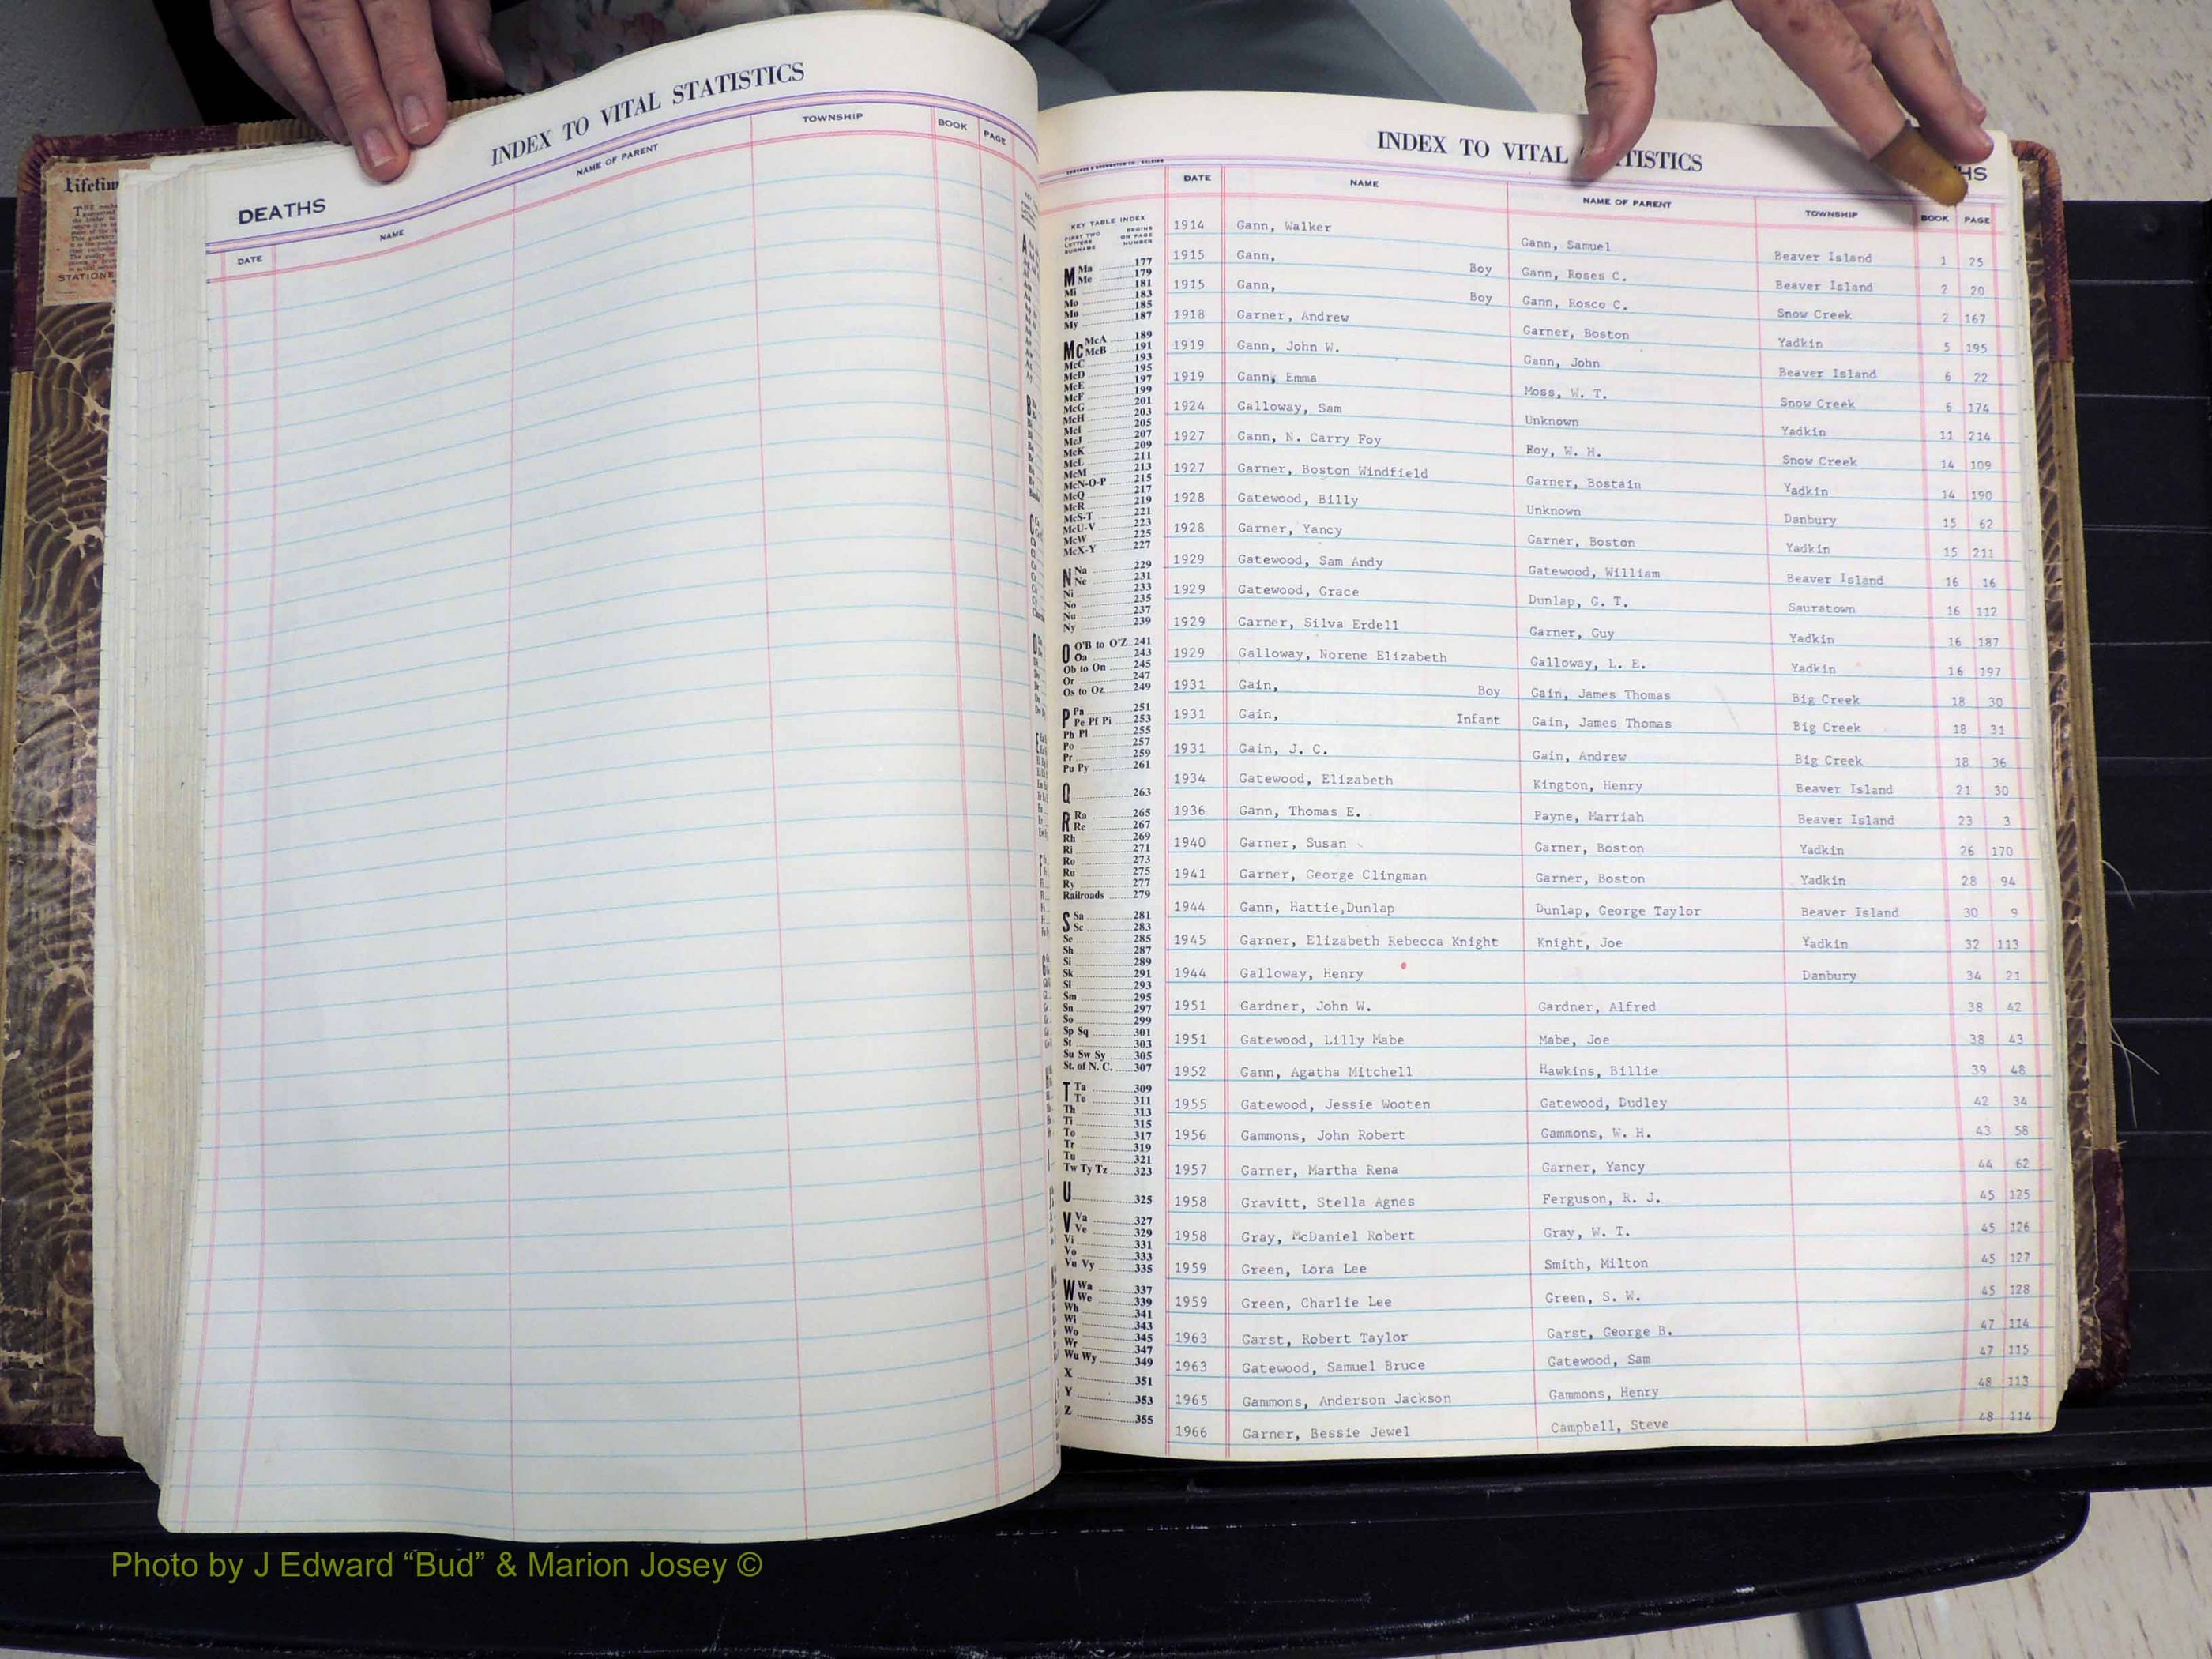 Lifetim
STATIONE
INDEX TO VITAL STATISTICS
DEATHS
DATE NAME NAME OF PARENT TOWNSHIP BOOK PAGE
INDEX TO VITAL TISTICS HS
DATE NAME NAME OF PARENT TOWNSHIP BOOK PAGE
KEY TABLE INDEX
FIRST TWO LETTERS SURNAME BEGINS ON PAGE NUMBER
M Ma 177
Me 179
Mi 181
Mo 183
Mu 185
My 187
Mc McA 189
McB 191
McC 193
McD 195
McE 197
McF 199
McG 201
McH 203
McI 205
McJ 207
McK 209
McL 211
McM 213
McN-O-P 215
McQ 217
McR 219
McS-T 221
McU-V 223
McW 225
McX-Y 227
N Na 229
Ne 231
Ni 233
No 235
Nu 237
Ny 239
O O'B to O'Z 241
Oa 243
Ob to On 245
Or 247
Os to Oz 249
P Pa 251
Pe Pf Pi 253
Ph Pl 255
Po 257
Pr 259
Pu Py 261
Q 263
R Ra 265
Re 267
Rh 269
Ri 271
Ro 273
Ru 275
Ry 277
Railroads 279
S Sa 281
Sc 283
Se 285
Sh 287
Si 289
Sk 291
Sl 293
Sm 295
Sn 297
So 299
Sp Sq 301
St 303
Su Sw Sy 305
St. of N. C. 307
T Ta 309
Te 311
Th 313
Ti 315
To 317
Tr 319
Tu 321
Tw Ty Tz 323
U 325
V Va 327
Ve 329
Vi 331
Vo 333
Vu Vy 335
W Wa 337
We 339
Wh 341
Wi 343
Wo 345
Wr 347
Wu Wy 349
X 351
Y 353
Z 355
1914 Gann, Walker Gann, Samuel Beaver Island 1 25
1915 Gann, Boy Gann, Roses C. Beaver Island 2 20
1915 Gann, Boy Gann, Rosco C. Snow Creek 2 167
1918 Garner, Andrew Garner, Boston Yadkin 5 195
1919 Gann, John W. Gann, John Beaver Island 6 22
1919 Gann, Emma Moss, W. T. Snow Creek 6 174
1924 Galloway, Sam Unknown Yadkin 11 214
1927 Gann, N. Carry Foy Foy, W. H. Snow Creek 14 109
1927 Garner, Boston Windfield Garner, Bostain Yadkin 14 190
1928 Gatewood, Billy Unknown Danbury 15 62
1928 Garner, Yancy Garner, Boston Yadkin 15 211
1929 Gatewood, Sam Andy Gatewood, William Beaver Island 16 16
1929 Gatewood, Grace Dunlap, G. T. Sauratown 16 112
1929 Garner, Silva Erdell Garner, Guy Yadkin 16 187
1929 Galloway, Norene Elizabeth Galloway, L. E. Yadkin 16 197
1931 Gain, Boy Gain, James Thomas Big Creek 18 30
1931 Gain, Infant Gain, James Thomas Big Creek 18 31
1931 Gain, J. C. Gain, Andrew Big Creek 18 36
1934 Gatewood, Elizabeth Kington, Henry Beaver Island 21 30
1936 Gann, Thomas E. Payne, Marriah Beaver Island 23 3
1940 Garner, Susan Garner, Boston Yadkin 26 170
1941 Garner, George Clingman Garner, Boston Yadkin 28 94
1944 Gann, Hattie,Dunlap Dunlap, George Taylor Beaver Island 30 9
1945 Garner, Elizabeth Rebecca Knight Knight, Joe Yadkin 32 113
1944 Galloway, Henry Danbury 34 21
1951 Gardner, John W. Gardner, Alfred 38 42
1951 Gatewood, Lilly Mabe Mabe, Joe 38 43
1952 Gann, Agatha Mitchell Hawkins, Billie 39 48
1955 Gatewood, Jessie Wooten Gatewood, Dudley 42 34
1956 Gammons, John Robert Gammons, W. H. 43 58
1957 Garner, Martha Rena Garner, Yancy 44 62
1958 Gravitt, Stella Agnes Ferguson, R. J. 45 125
1958 Gray, McDaniel Robert Gray, W. T. 45 126
1959 Green, Lora Lee Smith, Milton 45 127
1959 Green, Charlie Lee Green, S. W. 45 128
1963 Garst, Robert Taylor Garst, George B. 47 114
1963 Gatewood, Samuel Bruce Gatewood, Sam 47 115
1965 Gammons, Anderson Jackson Gammons, Henry 48 113
1966 Garner, Bessie Jewel Campbell, Steve 48 114
Photo by J Edward “Bud” & Marion Josey ©